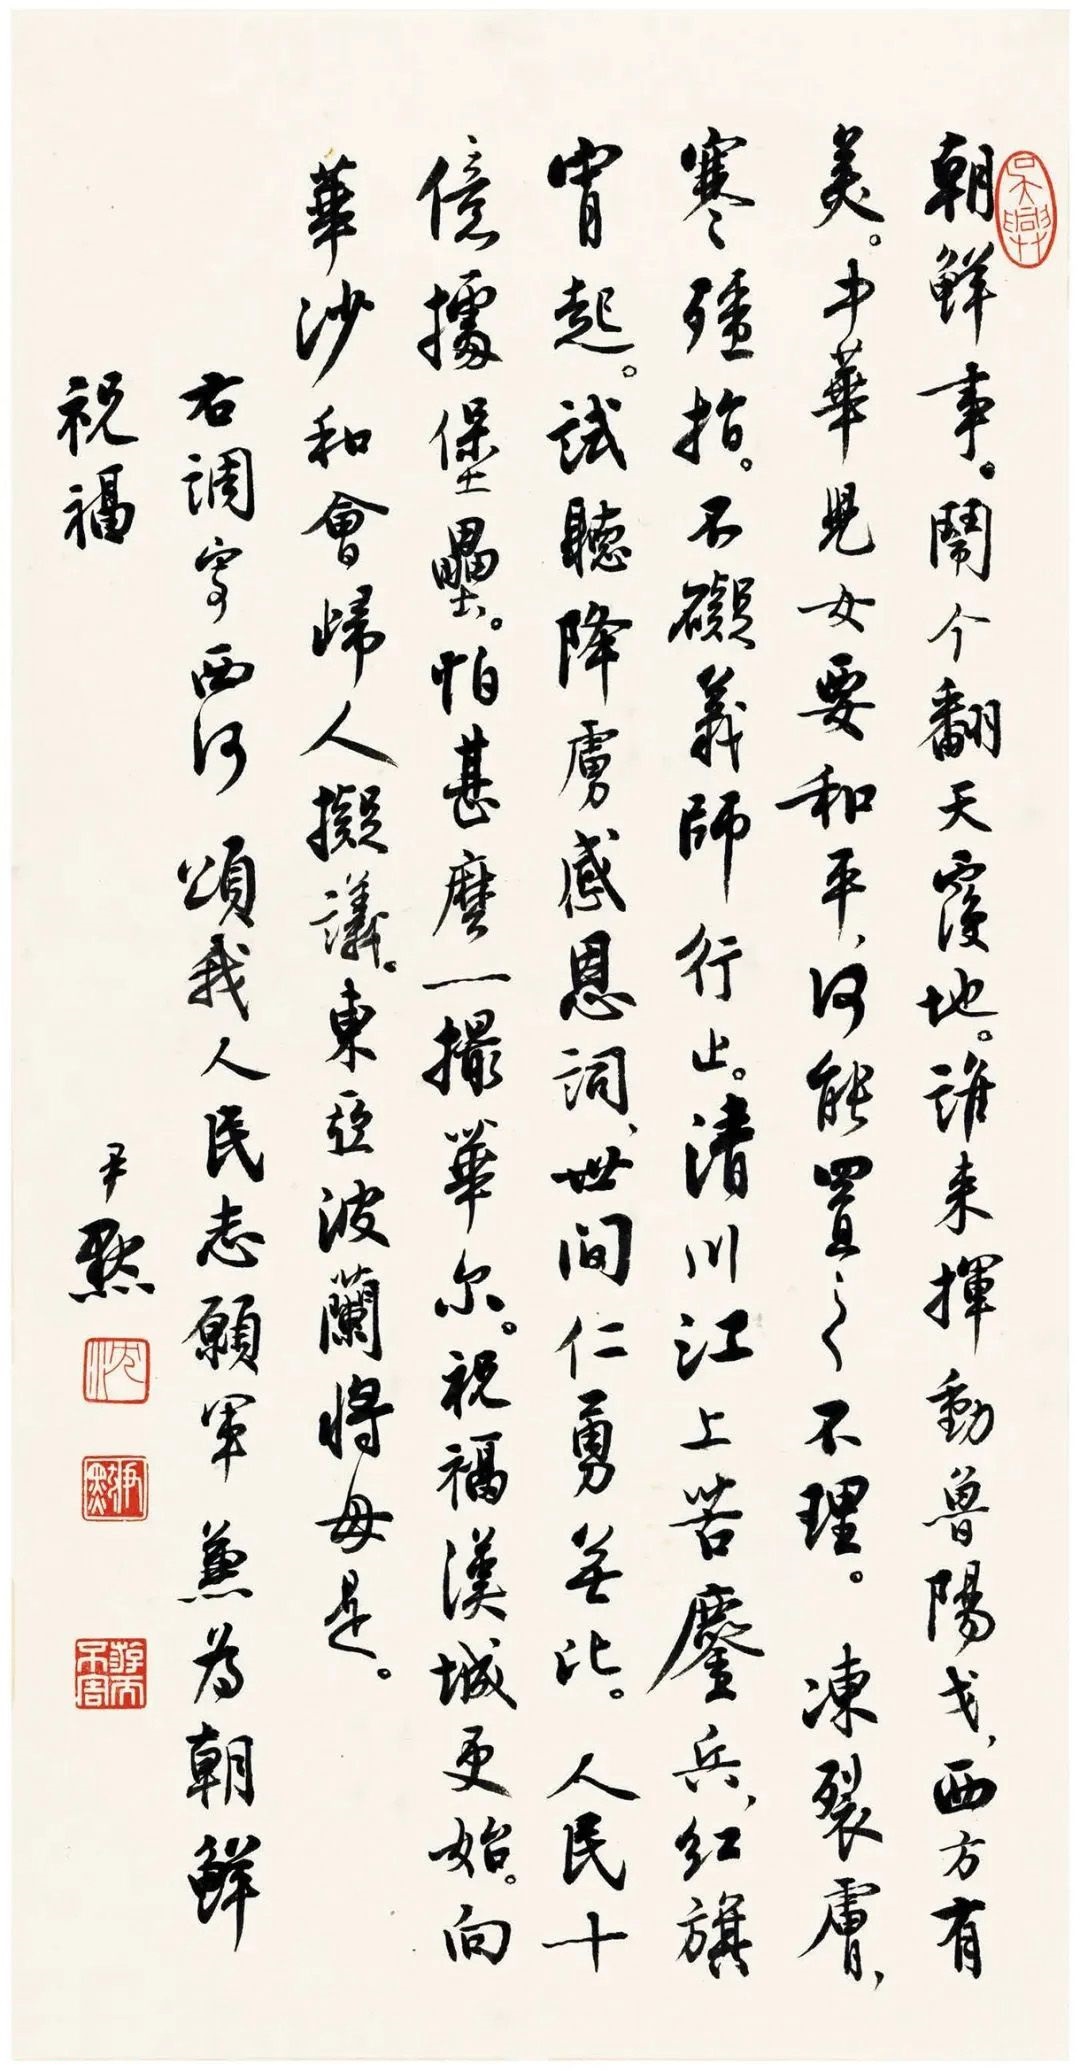 朝鮮事。鬧个翻天覆地。誰来揮動魯陽戈、西方有
美。中華児女要和平、何能置之不理。凍裂膚、
寒殭指。不礙義師行止。清川江上苦鏖兵、紅旗
宵起。試聽降虜感恩詞、世间仁勇無比。人民十
億據堡壘。怕甚麼一撮華尔。祝福漢城更始。向
華沙和會歸人擬議。東亞波蘭将毋是。
右調寄西河 頌我人民志願軍兼為朝鮮
祝福
尹默
吳興
沈
尹默